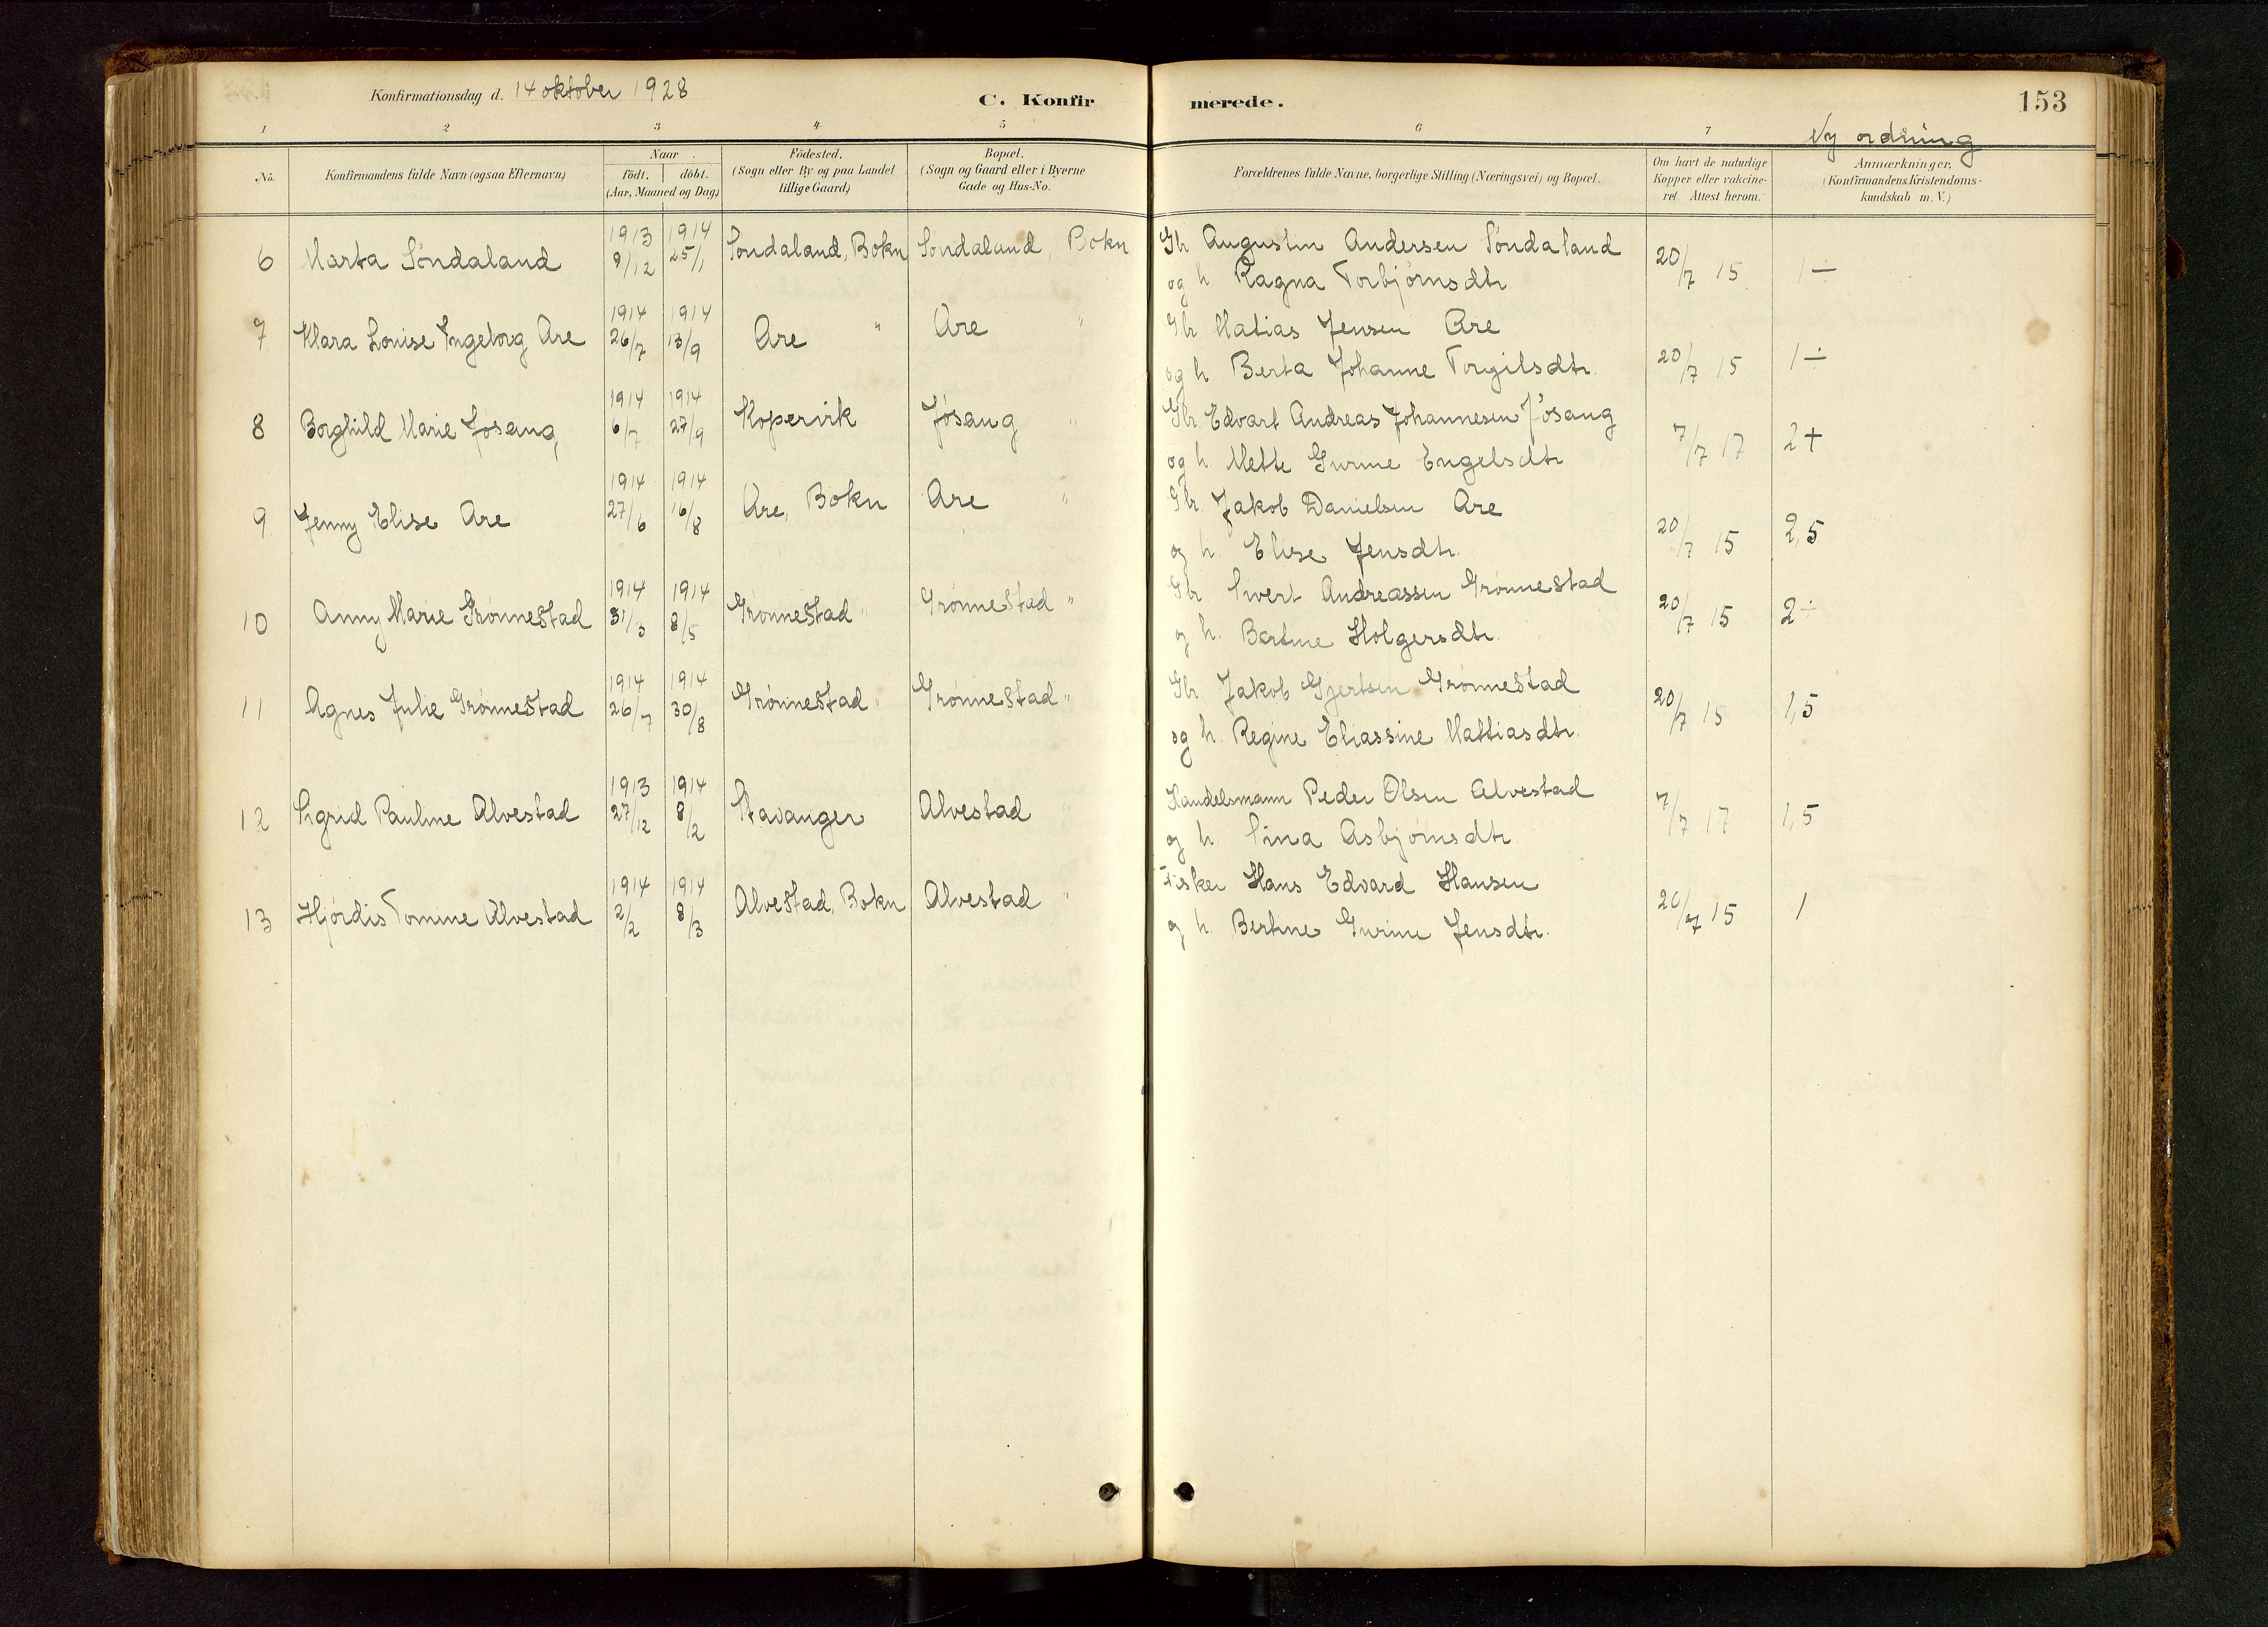 Konfirmationsdag d. 14 oktober 1928
C. Konfirmerede.
153
1 2 3 4 5 6 7
Ny ordning
No.
Konfirmandens fulde Navn (ogsaa Efternavn)
Naar
födt. döbt.
(Aar, Maaned og Dag)
Födested.
(Sogn eller By og paa Landet
tillige Gaard)
Bopæl.
(Sogn og Gaard eller i Byerne
Gade og Hus-No.
Forældrenes fulde Navne, borgerlige Stilling (Næringsvei) og Bopæl.
Om havt de naturlige
Kopper eller vakcine-
ret. Attest herom.
Anmærkninger.
(Konfirmandens Kristendoms-
kundskab m. V.)
6 Marta Söndaland 1913 9/12 1914 25/1 Söndaland, Bokn Söndaland, Bokn Gbr Augustin Andersen Söndaland
og h. Ragna Torbjörnsdtr. 20/7 15 1÷
7 Klara Louise Ingeborg Are 1914 26/7 1914 13/9 Are " Are " Gbr Matias Jensen Are
og h Berta Johanne Torgilsdtr. 20/7 15 1÷
8 Borghild Marie Jøsang, 1914 6/7 1914 27/9 Kopervik Jøsang " Gbr. Edvart Andreas Johannesen Jøsang
og h. Mette Gurine Engelsdtr 7/7 17 2+
9 Jenny Elise Are 1914 27/6 1914 16/8 Are, Bokn Are " Gbr. Jakob Danielsen Are
og h. Elise Jensdtr. 20/7 15 2,5
10 Anny Marie Grønnestad 1914 31/3 1914 8/5 Grønnestad " Grønnestad " Gbr Sivert Andreassen Grønnestad
og h. Bertine Holgersdtr. 20/7 15 2÷
11 Agnes Julie Grønnestad 1914 26/7 1914 30/8 Grønnestad " Grønnestad " Gbr Jakob Gjertsen Grønnestad
og h. Regine Eliassine Mattiasdtr. 20/7 15 1,5
12 Sigrid Pauline Alvestad 1913 27/12 1914 8/2 Stavanger Alvestad " Handelsmann Peder Olsen Alvestad
og h. Sina Asbjørnsdtr 7/7 17 1,5
13 Hjørdis Tomine Alvestad 1914 2/2 1914 8/3 Alvestad, Bokn Alvestad " Fisker Hans Edvard Hansen
og h. Bertine Gurine Jensdtr. 20/7 15 1